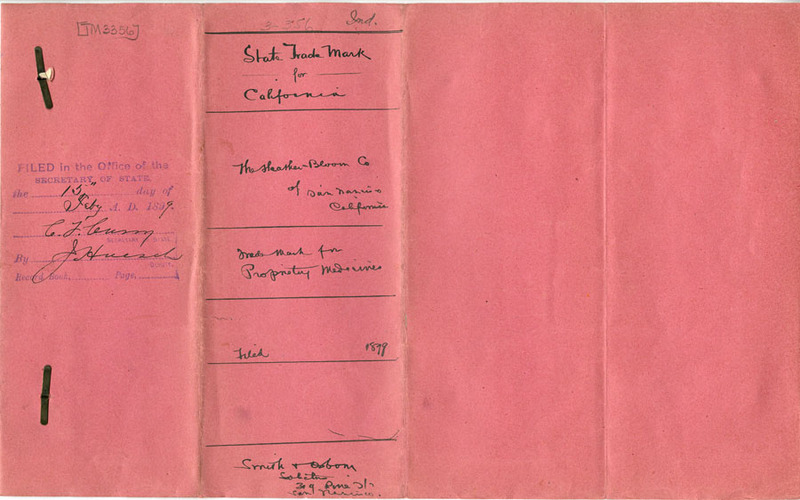 [TM3356]
FILED in the Office of the
SECRETARY OF STATE,
the 15" day of
Feby A. D. 1899.
C. F. Curry
SECRETARY OF STATE
By J. Hoesch
DEPUTY
Record Book, Page,
3356 Ind.
State Trade Mark
for
California
The Heather-Bloom Co
of San
California
Trade Mark for
Proprietry Medicines
Filed 1899
Smith & Osborn
319 Pine St
San Francisco.